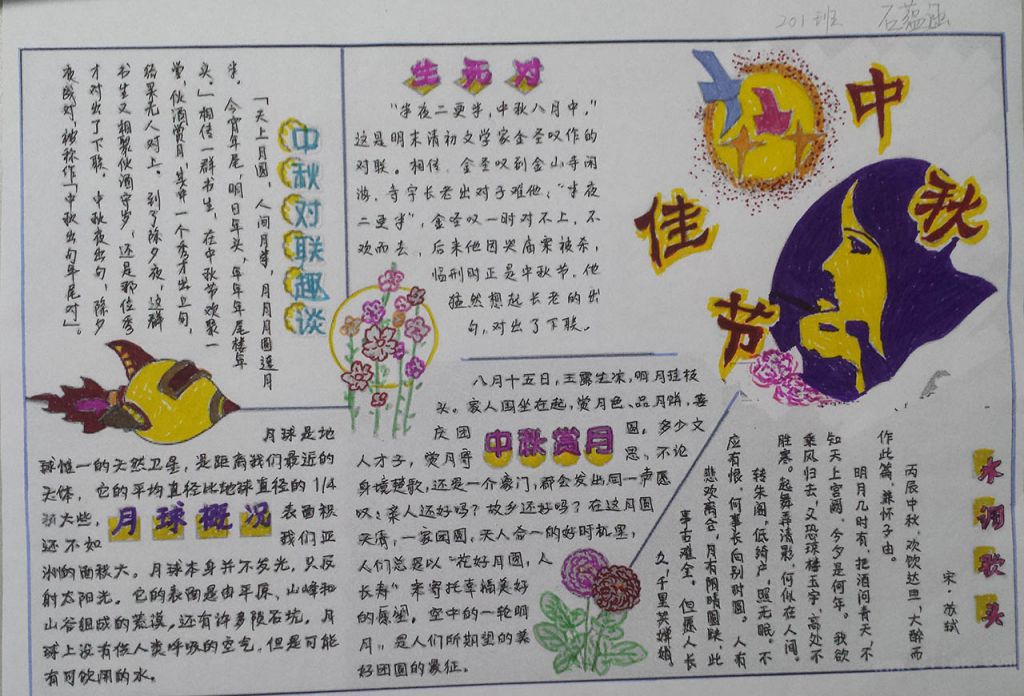 201班 石蕴涵
中秋对联趣谈
「天上月圆，人间月半，月月月圆逢月
半。今宵年尾，明日年头，年年年尾接年
头。」相传一群书生，在中秋节欢聚一
堂，饮酒赏月，其中一个秀才出上句，
结果无人对上。到了除夕夜，这群
书生又相聚饮酒守岁，还是那位秀
才对出了下联。中秋夜出句，除夕
夜成对，被称作「中秋出句年尾对」。
生死对
“半夜二更半，中秋八月中，”
这是明末清初文学家金圣叹作的
对联。相传，金圣叹到金山寺闲
游，寺宇长老出对子难他：“半夜
二更半”，金圣叹一时对不上，不
欢而去，后来他因哭庙案被杀，
临刑时正是中秋节，他
猛然想起长老的出
句，对出了下联。
中
秋
佳
节
月球是地
球惟一的天然卫星，是距离我们最近的
天体，它的平均直径比地球直径的1/4
大些，
表面积
还不如
我们亚
月球概况
洲的面积大。月球本身并不发光，只反
射太阳光。它的表面是由平原、山峰和
山谷组成的荒漠，还有许多陨石坑。月
球上没有供人类呼吸的空气，但是可能
有可饮用的水。
八月十五日，玉露生凉，明月挂枝
头。家人围坐在起，赏月色、品月饼，喜
庆团
圆，多少文
中秋赏月
人才子，赏月寄
思，不论
身境楚歌，还是一介豪门，都会发出同一声感
叹：亲人还好吗？故乡还好吗？在这月圆
天济，一家团圆，天人合一的好时机里，
人们总是以“花好月圆，人
长寿”来寄托幸福美好
的愿望。空中的一轮明
月，是人们所期望的美
好团圆的象征。
水调歌头
宋·苏轼
丙辰中秋，欢饮达旦，大醉而
作此篇，兼怀子由。
明月几时有，把酒问青天，不
知天上宫阙，今夕是何年。我欲
乘风归去，又恐琼楼玉宇，高处不
胜寒。起舞弄清影，何似在人间。
转朱阁，低绮户，照无眠。不
应有恨，何事长向别时圆。人有
悲欢离合，月有阴晴圆缺，此
事古难全。但愿人长
久，千里共婵娟。